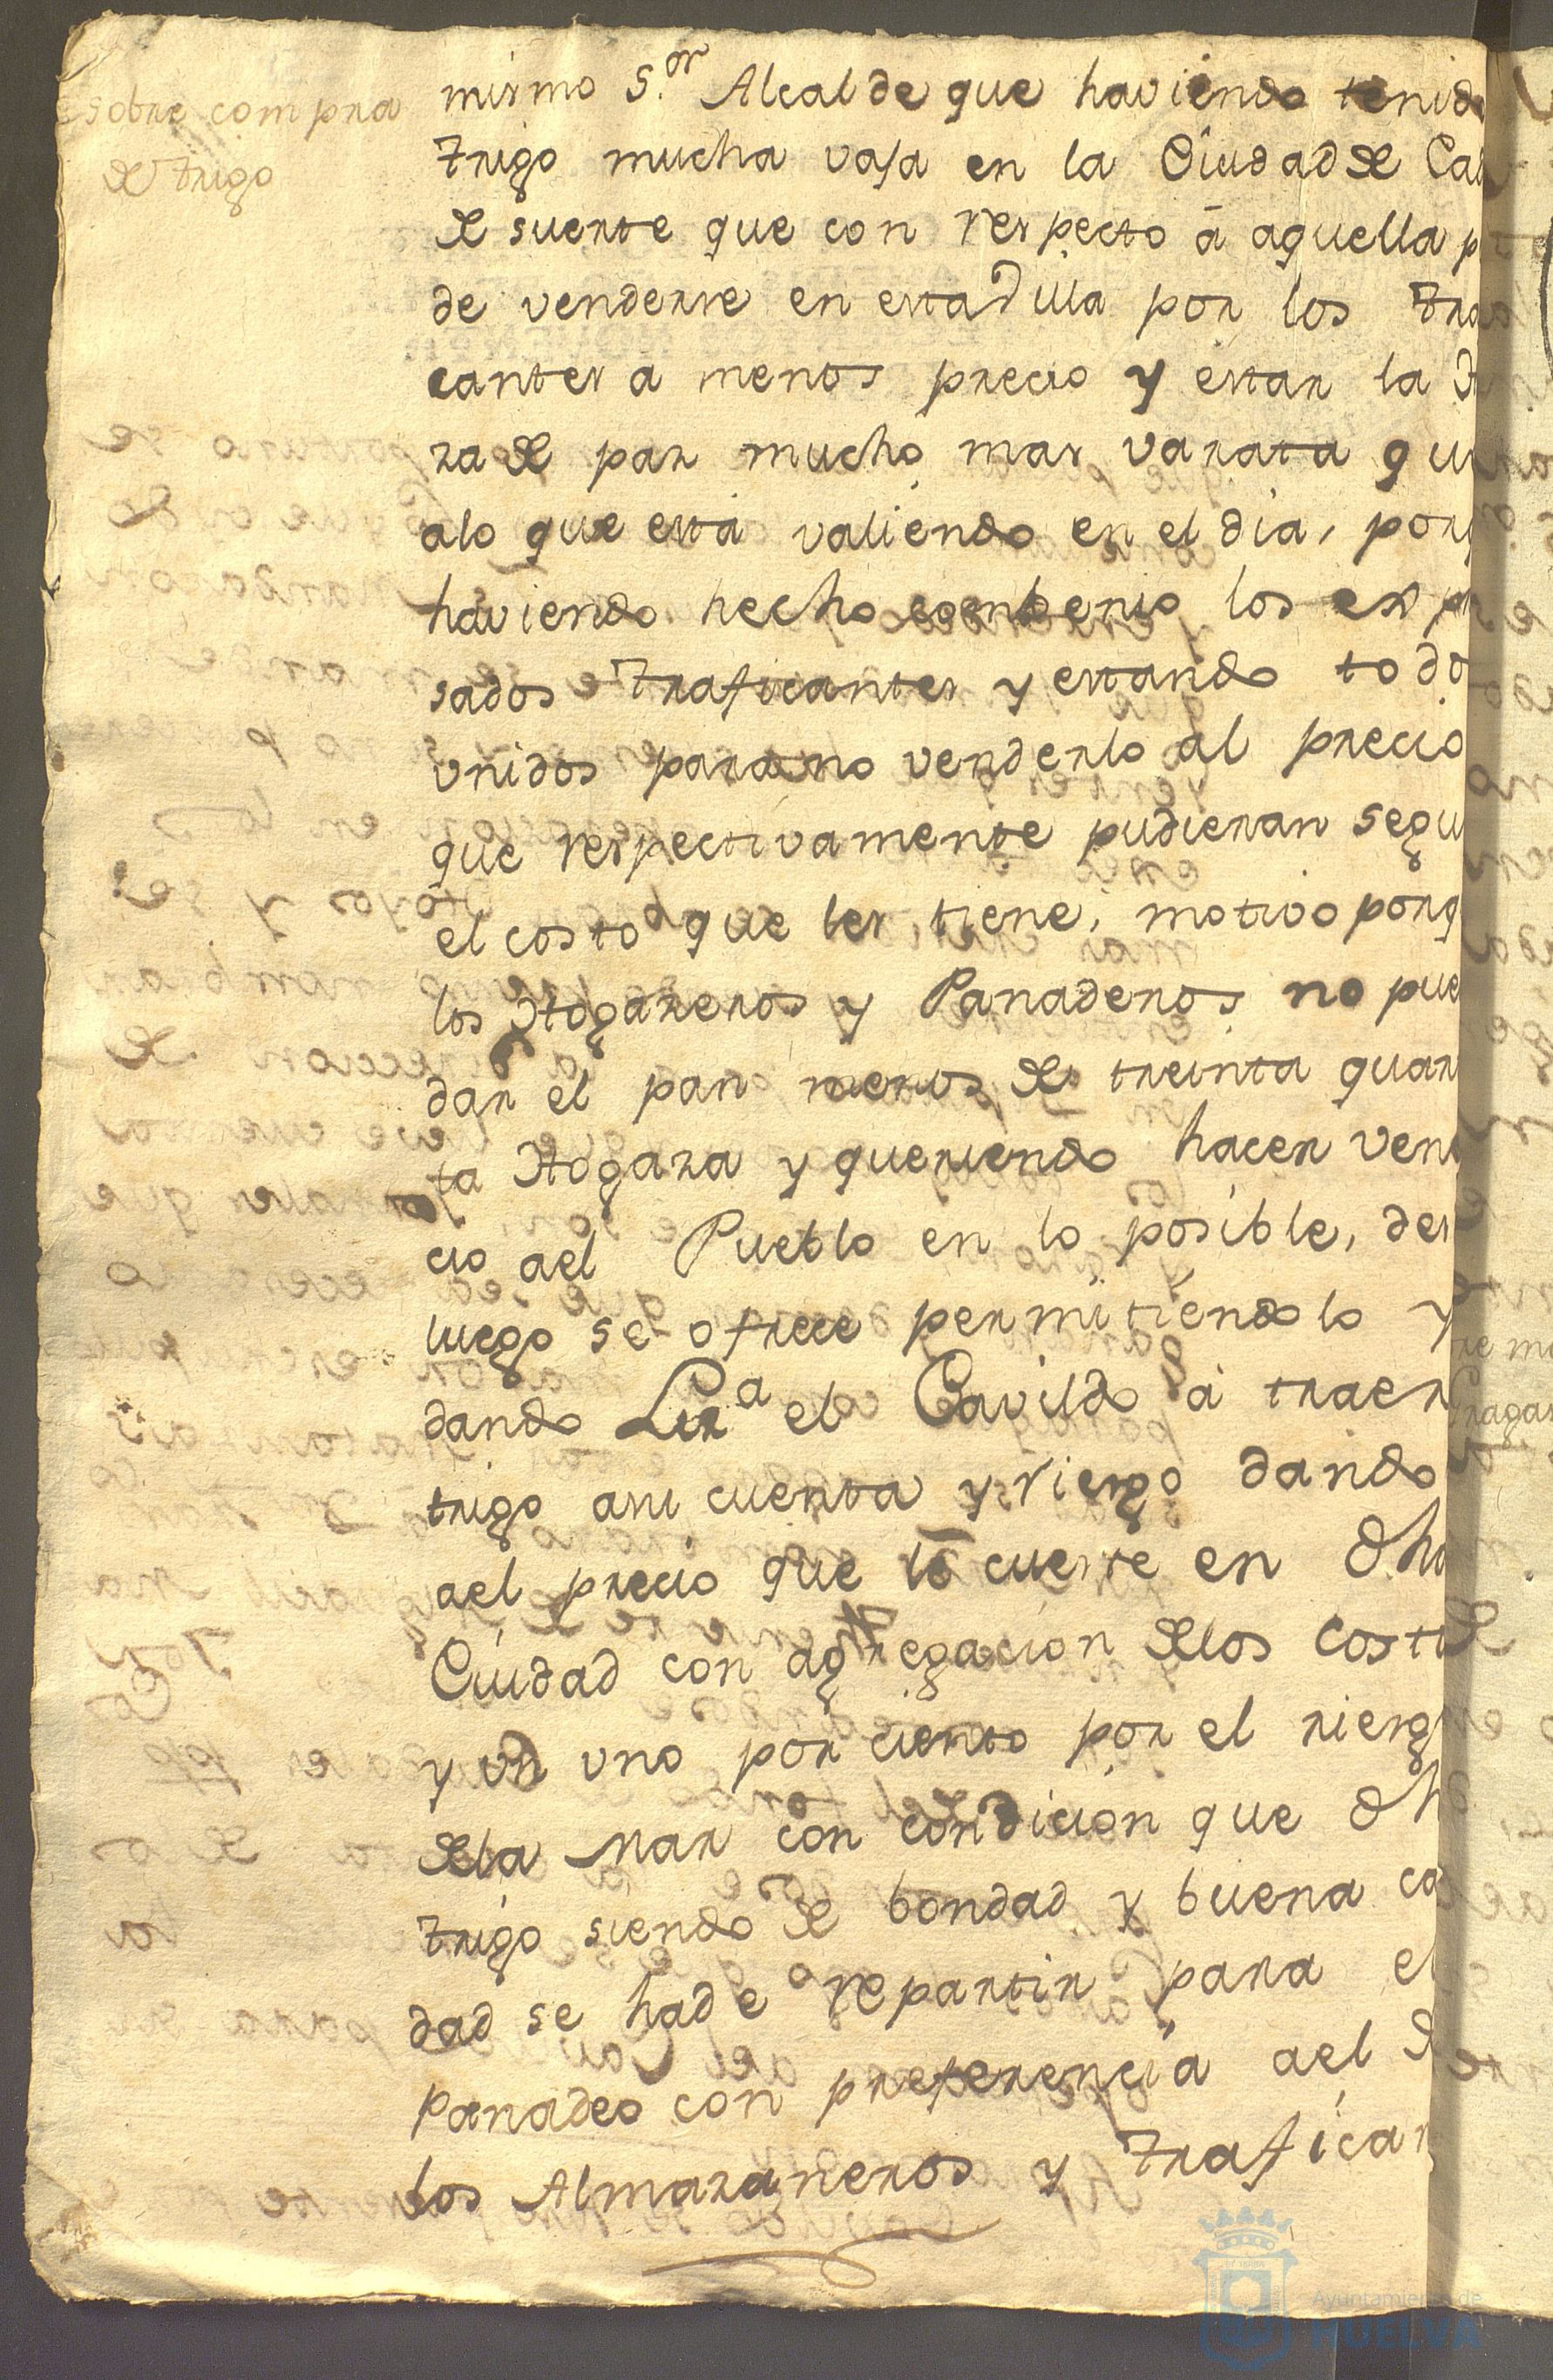 sobre compra
de trigo
mismo S.or Alcalde que haviendo tenido
trigo mucha vaja en la Ciudad de Cad
de suerte que con respecto â aquella p
de venderse en esta Villa por los tra
cantes a menos precio y estar la
za de pan mucho mas varata qu
alo que està valiendo en el dia, porq
haviendo hecho conbenio los expr
sados traficantes y estando todo
vnidos para no venderlo al precio
que respectivamente pudieran segu
el costo que les tiene, motivo porq
los Hogazeros y Panaderos no pue
dar el pan menos de treinta quar
ta Hogaza y queriendo hacer vene
cio ael Pueblo en lo posible, des
luego se ofrece permitiendolo y
dando Liz.a el Cavildo â traer
trigo asu cuenta y riesgo dando
ael precio que le cueste en dha
Ciudad con agregacion de los costo
y un uno por ciento por el riesg
de la Mar con condicion que dh
trigo siendo de bondad y buena ca
dad se ha de repartir para el
panadeo con preferencia ael d
los Almazaneros y trafican
Ayuntamiento de
HUELVA